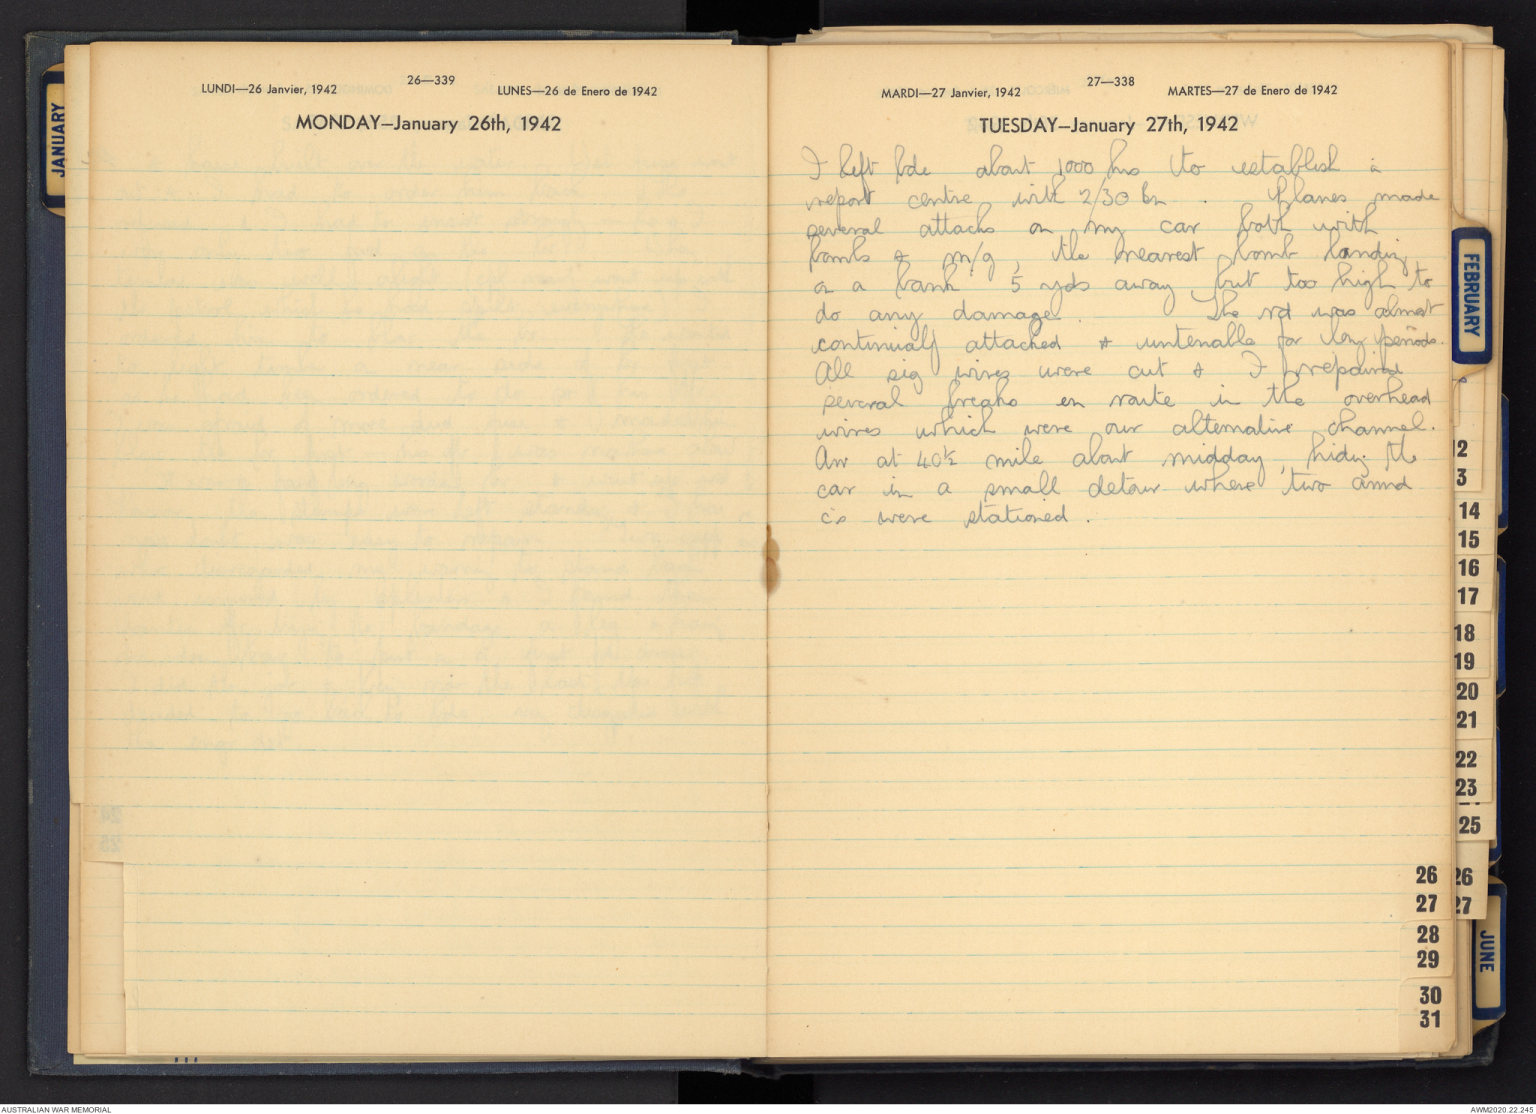 JANUARY
LUNDI—26 Janvier, 1942
26—339
LUNES—26 de Enero de 1942
MONDAY—January 26th, 1942
MARDI—27 Janvier, 1942
27—338
MARTES—27 de Enero de 1942
TUESDAY—January 27th, 1942
I left bde about 1000 hrs to establish a
report centre with 2/30 bn. Planes made
several attacks on my car both with
bombs & m/g, the nearest bomb landing
on a bank 5 yds away, but too high to
do any damage. The rd was almost
continually attacked & untenable for long periods.
All sig wires were cut & I repaired
several breaks en route in the overhead
wires which were our alternative channel.
Arr at 40½ mile about midday, hiding the
car in a small detour where two armd
c's were stationed.
FEBRUARY
12
3
14
15
16
17
18
19
20
21
22
23
25
26
27
26
27
28
29
30
31
JUNE
AUSTRALIAN WAR MEMORIAL
AWM2020.22.245